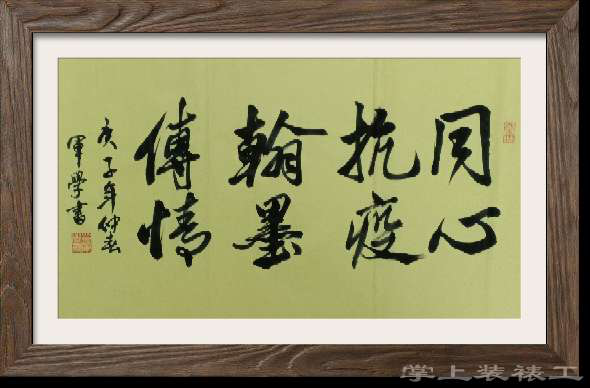 同心
抗疫
翰墨
傳情
庚子年仲春
軍學書
掌上装裱工